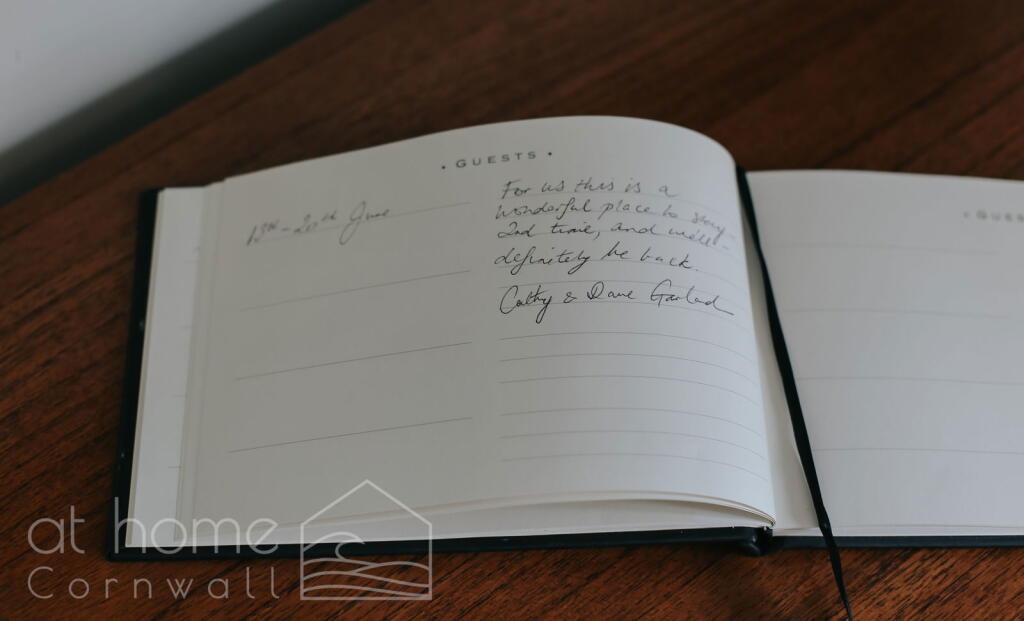 • GUESTS •
13th - 20th June
For us this is a
wonderful place to stay -
2nd time, and we'll -
definitely be back.
Cathy & Dave Garland
• GUES
at home
Cornwall